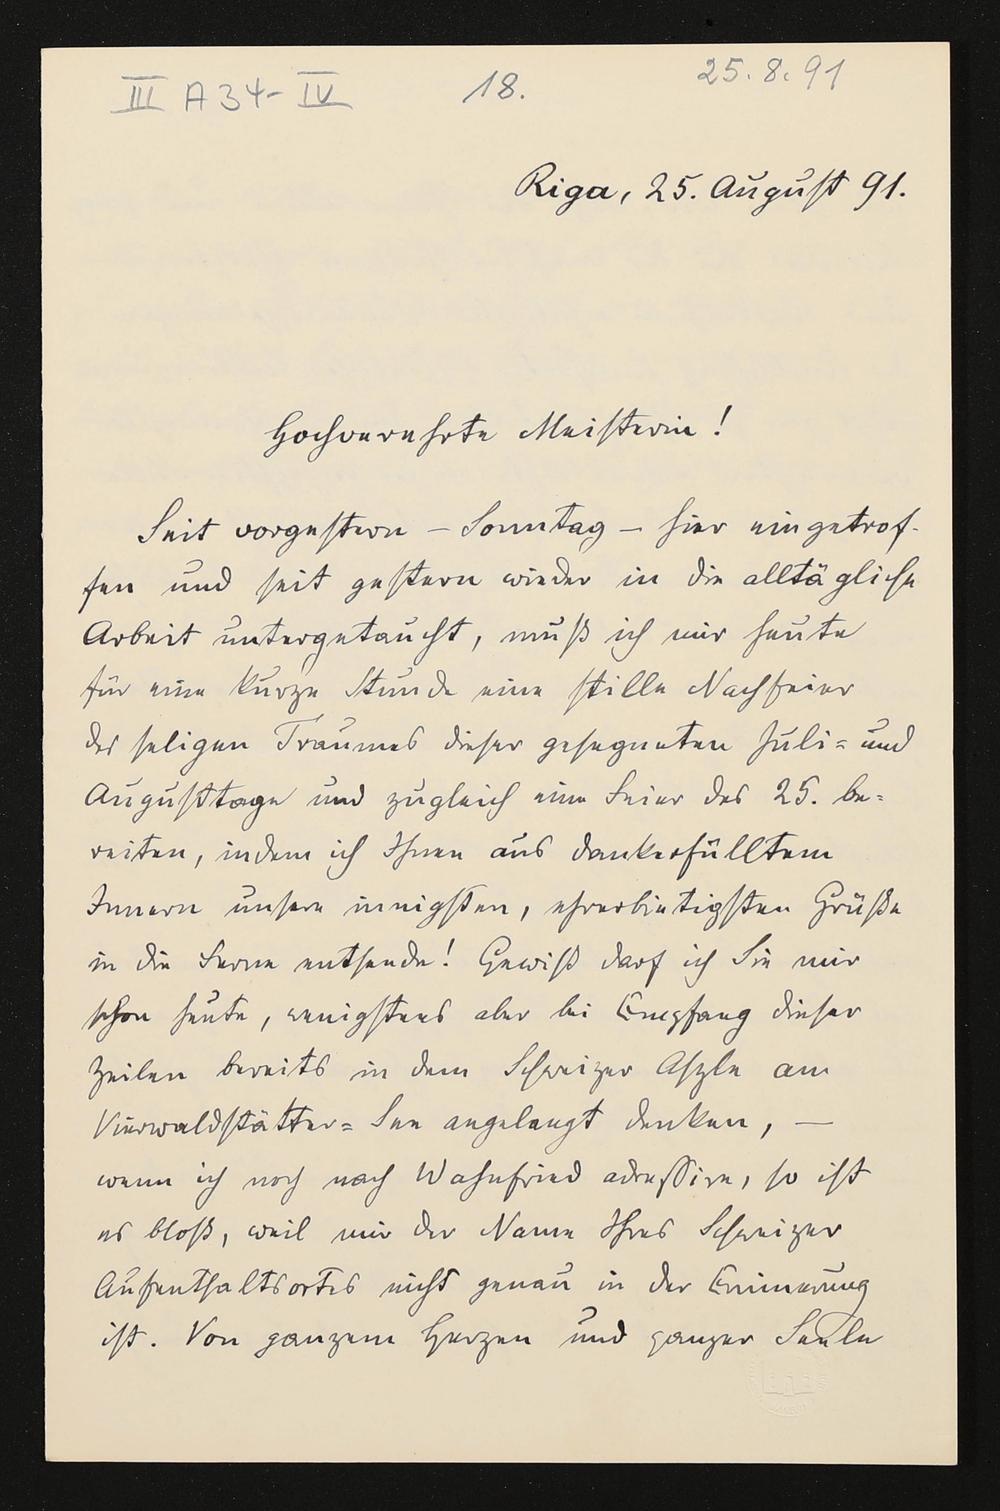 III A 34-IV 18. 25.8.91
Riga, 25. August 91.
Hochverehrte Meisterin!
Seit vorgestern – Sonntag – hier eingetrof-
fen und seit gestern wieder in die alltägliche
Arbeit untergetaucht, muß ich mir heute
für eine kurze Stunde eine stille Nachfeier
des seligen Traumes dieser gesegneten Juli= und
Augusttage und zugleich eine Feier des 25. be=
reiten, indem ich Ihnen aus dankerfülltem
Innern unsere innigsten, ehrerbietigsten Grüße
in die Ferne entsende! Gewiß darf ich Sie mir
schon heute, wenigstens aber bei Empfang dieser
Zeilen bereits in dem Schweizer Asyle am
Vierwaldstätter= See angelangt denken, —
wenn ich noch nach Wahnfried adressire, so ist
es bloß, weil mir der Name Ihres Schweizer
Aufenthaltsortes nicht genau in der Erinnerung
ist. Von ganzem Herzen und ganzer Seele